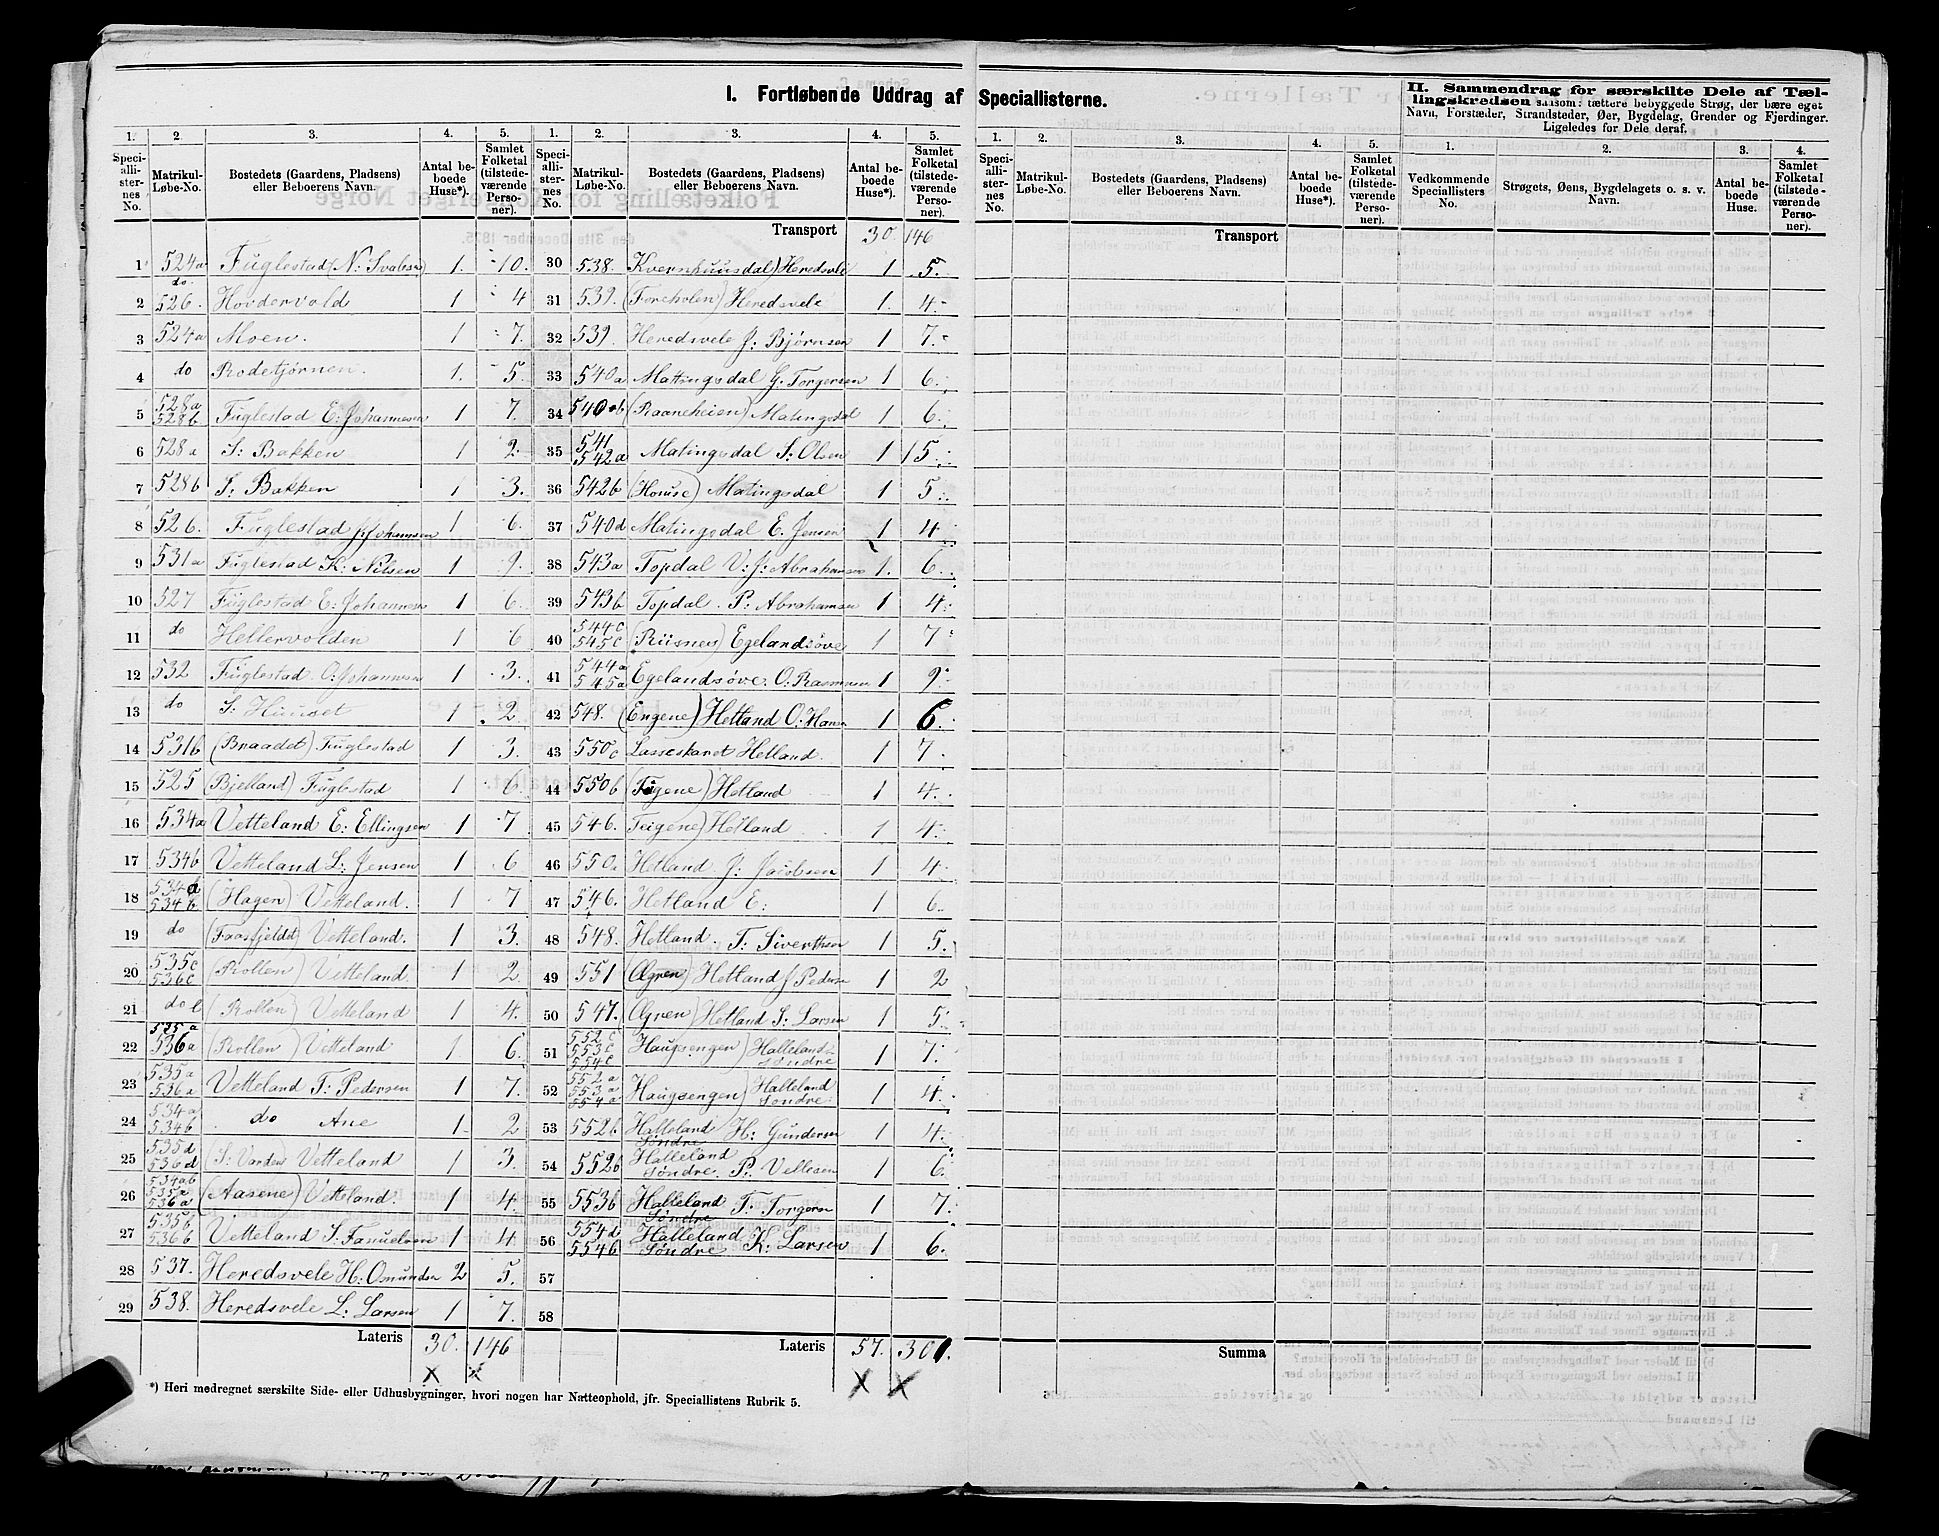 I. Fortløbende Uddrag af Speciallisterne.
1. 2. 3. 4. 5. 1. 2. 3. 4. 5.
Speciallisternes No. Matrikul-Løbe-No. Bostedets (Gaardens, Pladsens) eller Beboerens Navn. Antal beboede Huse*). Samlet Folketal (tilstedeværende Personer).
Speciallisternes No. Matrikul-Løbe-No. Bostedets (Gaardens, Pladsens) eller Beboerens Navn. Antal beboede Huse*). Samlet Folketal (tilstedeværende Personer).
1 524a Fuglestad N: Svalesen 1. 10.
2 do 526. Hovdervold 1 4
3 524a Moen. 1 7.
4 do Rodetjørnen. 1. 5.
5 528a 528b Fuglestad E: Johannesen 1 7.
6 528a S: Bakken 1 2.
7 528b S: Bakken 1 3.
8 526. Fuglestad J Johansen 1 6.
9 531a Fuglestad K: Nilsen 1 9.
10 527 Fuglestad E: Johannesen 1 6.
11 do Hellervolden 1 6
12 532 Fuglestad O: Johannesen 1 3.
13 do S: Huuset 1 2.
14 531b (Braadet) Fuglestad 1 3.
15 525 (Bjelland) Fuglestad 1 6
16 534a Vetteland E: Ellingsen 1 7
17 534b Vetteland L: Jensen 1 6
18 534a 534b (Hagen) Vetteland. 1 7
19 do (Faasfjeldt) Vetteland. 1 3.
20 535c 536c (Rollen) Vetteland 1 2
21 do (Rollen) Vetteland 1 4.
22 535a 536a (Rollen) Vetteland 1 6.
23 535a 536a Vetteland T: Pedersen 1 7.
24 534a 534b do Ane 1 2
25 535d 536d (S: Varden Vetteland 1 3.
26 534ab 535a 536a (Aasene) Vetteland. 1 4.
27 535b 536b Vetteland S: Fanuelsen 1 4
28 537. Heredsvele H: Osmundsen 2 5.
29 538. Heredsvele L: Larsen 1 7.
Lateris 30. 146
Transport 30. 146
30 538. Kvernhuusdal) Heredsvele 1 5.
31 539. (Foreholen) Heredsvele 1. 4
32 539. Heredsvele J: Bjørnsen 1 7.
33 540a Mattingsdal G: Torgersen 1 6.
34 540b (Raaneheien) Matingsdal 1 6.
35 541 542a Matingsdal S: Olsen 1 5.
36 542b (House) Matingsdal 1 5.
37 540d Matingsdal E. Jensen 1 4
38 543a Topdal V: J: Abrahamsen 1. 6.
39 543b Topdal. P: Abrahamsen 1 4.
40 544c 545c (Riisnes) Egelandsøve 1 7
41 544a 545a Egelandsøve. O. Rasmussen 1 9.
42 548. (Engene) Hetland O: Hansen 1 6.
43 550c Lasseskaret Hetland. 1 7.
44 550b (Teigene) Hetland 1 4.
45 546. Teigene) Hetland 1 4.
46 550a Hetland J: Jacobsen 1 4
47 546. Hetland E: 1 6.
48 548. Hetland. T: Siverthsen 1 5.
49 551 (Øgnen) Hetland J Pedersen 1 2
50 547. (Øgnen) Hetland S: Larsen 1 5.
51 552c 553c 554c Haugsengen) Halleland Søndre 1 7.
52 552a 553a 554a Haugsengen) Halleland Søndre. 1 4.
53 552b. Halleland Søndre H: Gundersen 1 4.
54 552b Halleland Søndre. P. Vellesen 1 6.
55 553b Halleland Søndre T: Torgersen 1 7.
56 554d 554b Halleland Søndre K: Larsen 1 6.
57
58
Lateris 57. 301.
*) Heri medregnet særskilte Side- eller Udhusbygninger, hvori nogen har Natteophold, jfr. Speciallistens Rubrik 5.
1. 2. 3. 4. 5.
Speciallisternes No. Matrikul-Løbe-No. Bostedets (Gaardens, Pladsens) eller Beboerens Navn. Antal beboede Huse*). Samlet Folketal (tilstedeværende Personer).
Transport
Summa
II. Sammendrag for særskilte Dele af Tællingskredsen saasom: tættere bebyggede Strøg, der bære eget
Navn, Forstæder, Strandsteder, Øer, Bygdelag, Grender og Fjerdinger.
Ligeledes for Dele deraf.
1. 2. 3. 4.
Vedkommende Speciallisters No. Strøgets, Øens, Bygdelagets o. s. v. Navn. Antal beboede Huse. Samlet Folketal (tilstedeværende Personer).